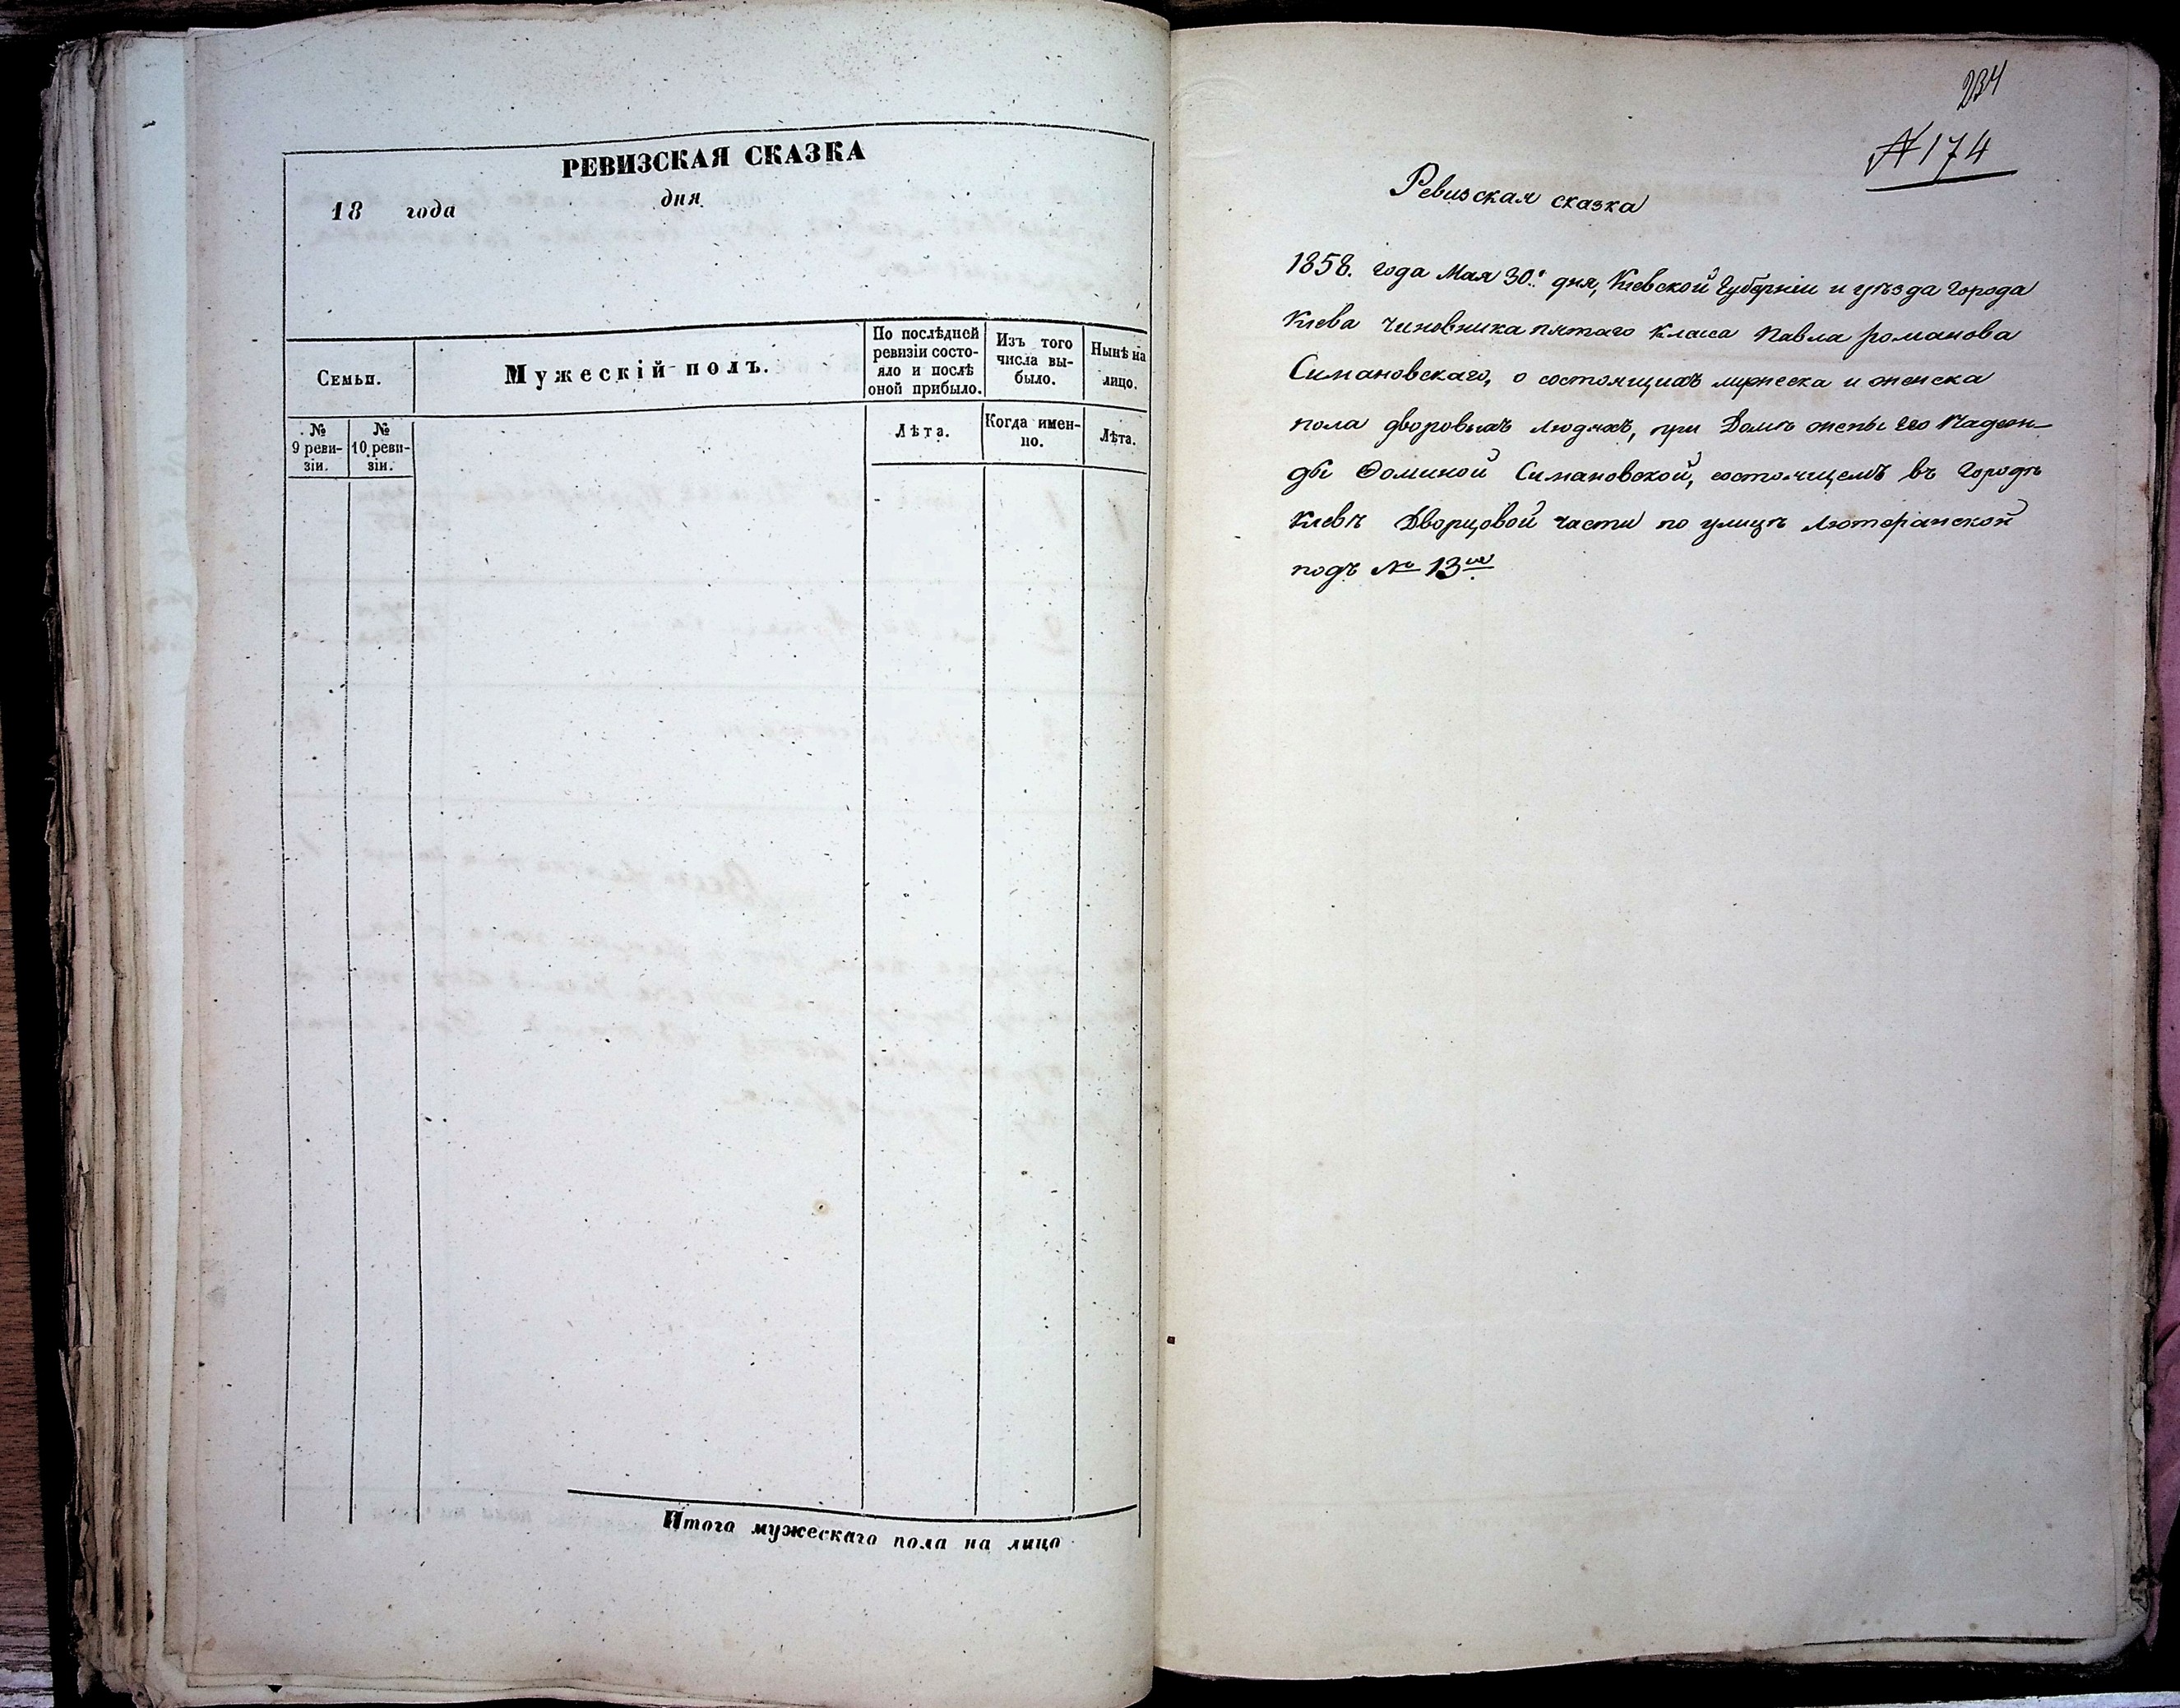 РЕВИЗСКАЯ СКАЗКА
18 года дня
Семьи.
Мужескій полъ.
По послѣдней ревизіи состояло и послѣ оной прибыло.
Изъ того числа выбыло.
Нынѣ на лицо.
№ 9 ревизіи.
№ 10 ревизіи.
Лѣта.
Когда именно.
Лѣта.
Итого мужескаго пола на лицо
234
№ 174
Ревизская сказка
1858. года Мая 30. дня, Кіевской Губерніи и уѣзда Города
Кіева Чиновника пятаго Класса Павла Романова
Симановскаго, о состоящихъ мужеска и женска
пола дворовыхъ людяхъ, при Домѣ жены его Надеж-
ды Фоминой Симановской, состоящемъ въ Городѣ
Кіевѣ Дворцовой части по улицѣ Лютеранской
подъ № 13